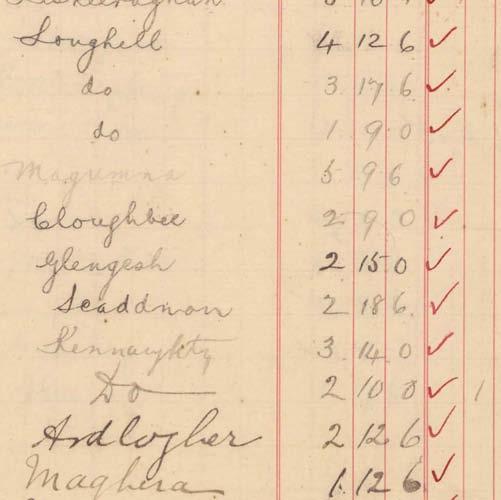 Loughill 4 12 6 ✓
do 3 17 6 ✓
do 1 9 0 ✓
Magumna 5 9 6 ✓
Cloughbee 2 9 0 ✓
Glengesh 2 15 0 ✓
Scaddmon 2 18 6 ✓
Kennaughty 3 14 0 ✓
Do 2 10 0 ✓ 1
Ardlogher 2 12 6 ✓
Maghera 1 12 6 ✓